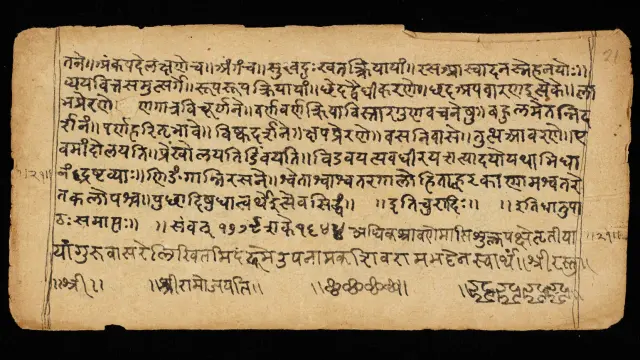 तने॥ अंक पदे लक्षणे च॥ अंग च॥ सुख दुःख तत्क्रियायां॥ रस आस्वादनस्नेहनयोः॥
व्यय वित्तसमुत्सर्गे॥ रूप रूपक्रियायां॥ छेद द्वैधीकरणे॥ छद अपवारण इत्येके॥ ला
भ प्रेरणे॥ गात्रविचूर्णने॥ वर्ण वर्णक्रियाविस्तारगुणवचनेषु॥ बहुलमेतन्निद
र्शनं॥ पर्ण हरितभावे॥ विष्क दर्शने॥ क्षप प्रेरणे॥ वस निवासे॥ तुत्थ आवरणे॥ ए
वमांदोलयति॥ प्रेंखोलयति विडंबयति॥ अवधीरयतीत्यादयो यथाभिधा
नं द्रष्टव्याः॥ णिङंगान्निरसने॥ श्वेताश्वाश्वतरगालोडिताह्वरकाणामश्वतरे
तकलोपश्च॥ पुच्छादिषु धात्वर्थ इत्येव सिद्धं॥ ॥इति चुरादिः॥ ॥इति धातुपा
ठः समाप्तः॥ संवत् १७७९ शके १६४४ अधिकश्रावणमासि शुक्लपक्षे तृतीया
यां गुरुवासरे लिखितमिदं उपनामकशिवरामभट्टेन स्वार्थं॥ श्रीरस्तु॥
॥श्रीः॥ ॥श्रीरामो जयति॥